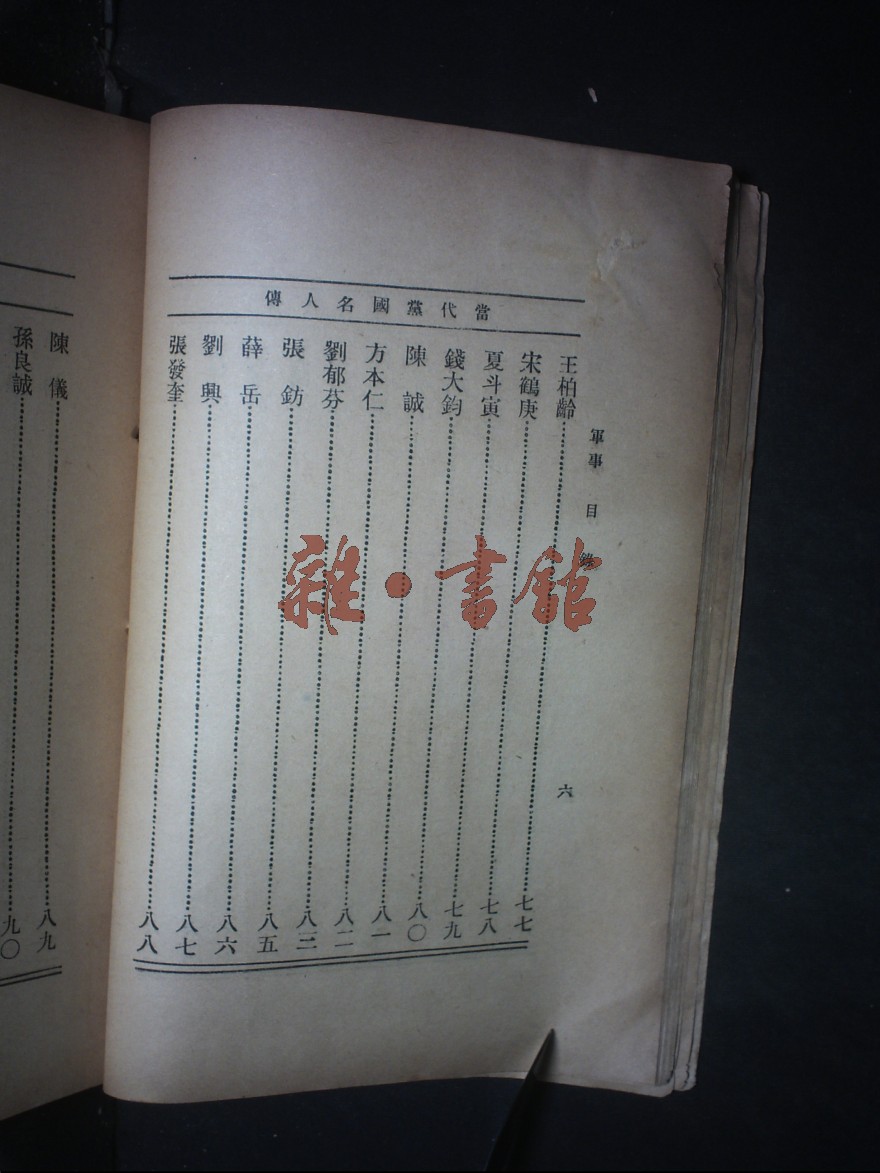 軍事 目錄 六
當代黨國名人傳
王柏齡……七七
宋鶴庚……七八
夏斗寅……七九
錢大鈞……八〇
陳誠……八一
方本仁……八二
劉郁芬……八三
張鈁……八五
薛岳……八六
劉興……八七
張發奎……八八
陳儀……八九
孫良誠……九〇
雜·書館